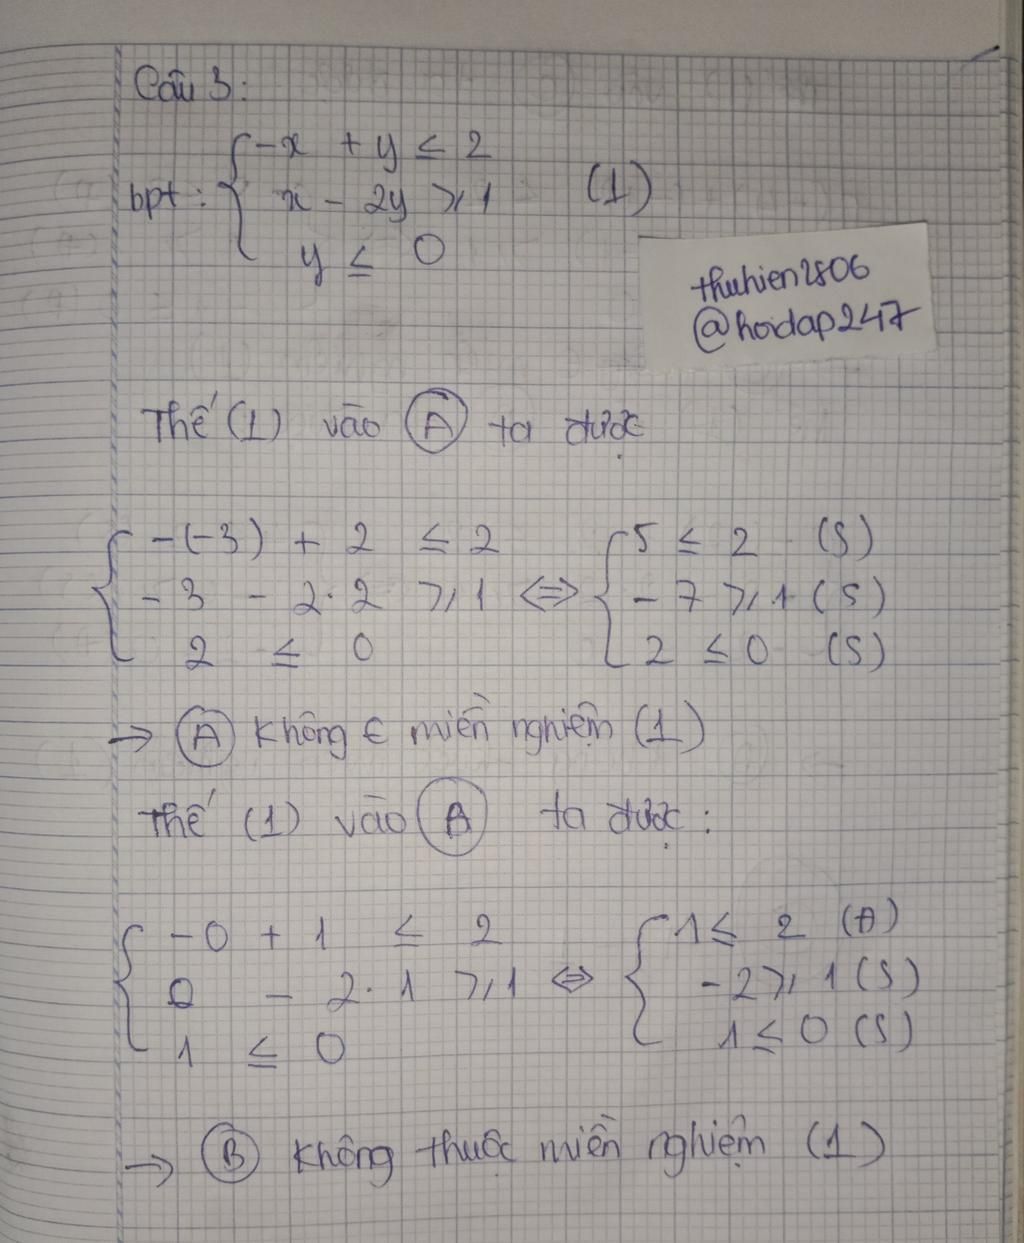 Câu 3:
-x + y ≤ 2
bpt: x - 2y ≥ 1 (1)
y ≤ 0
thuhien2806
@hoidap247
Thế (1) vào A ta được
-(-3) + 2 ≤ 2 5 ≤ 2 (S)
-3 - 2.2 ≥ 1 <=> -7 ≥ 1 (S)
2 ≤ 0 2 ≤ 0 (S)
→ A không ∈ miền nghiệm (1)
Thế (1) vào B ta được:
-0 + 1 ≤ 2 1 ≤ 2 (Đ)
0 - 2.1 ≥ 1 <=> -2 ≥ 1 (S)
1 ≤ 0 1 ≤ 0 (S)
→ B không thuộc miền nghiệm (1)